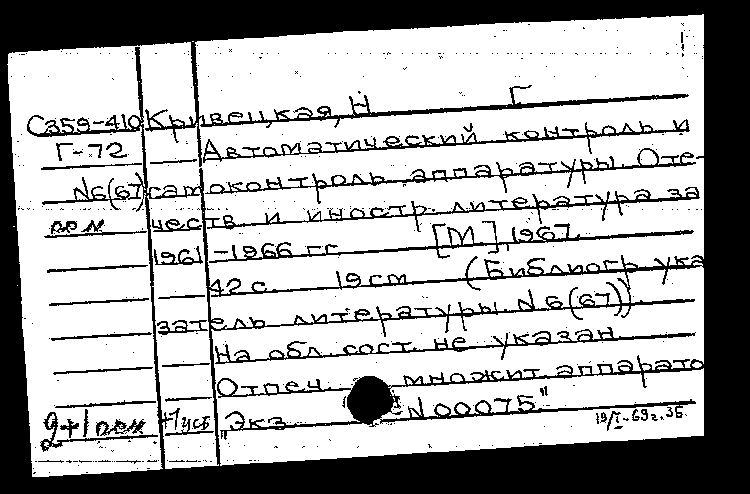 С359-410 Кривецкая, Н Г
Г-72 Автоматический контроль и
N6(67) самоконтроль аппаратуры. Оте-
рем честв и иностр. литература за
1961-1966 гг [М.], 1967.
42 с. 19 см (Библиогр. ука
затель литературы. N 6(67))
На обл. сост. не указан.
Отпеч. множит. аппарато
2+1 рем +1 уст "Экз N00075" 19/I-69г. 35.